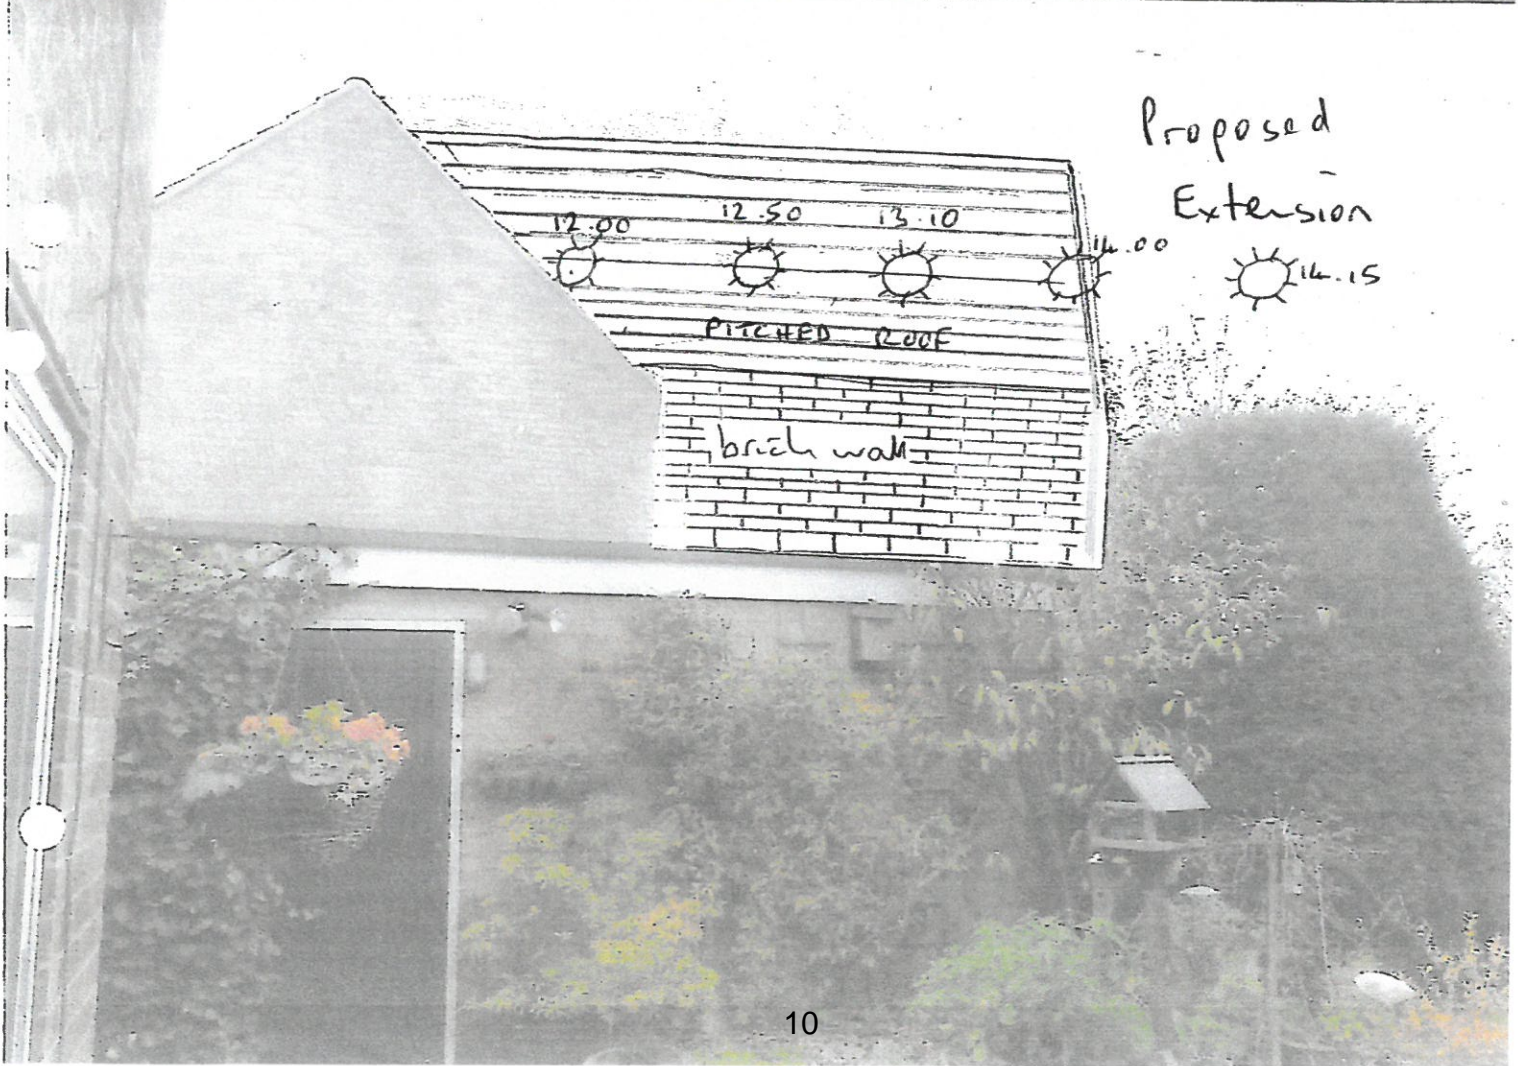 Proposed
Extension
12.00
12.50
13.10
14.00
14.15
PITCHED ROOF
brick wall
10